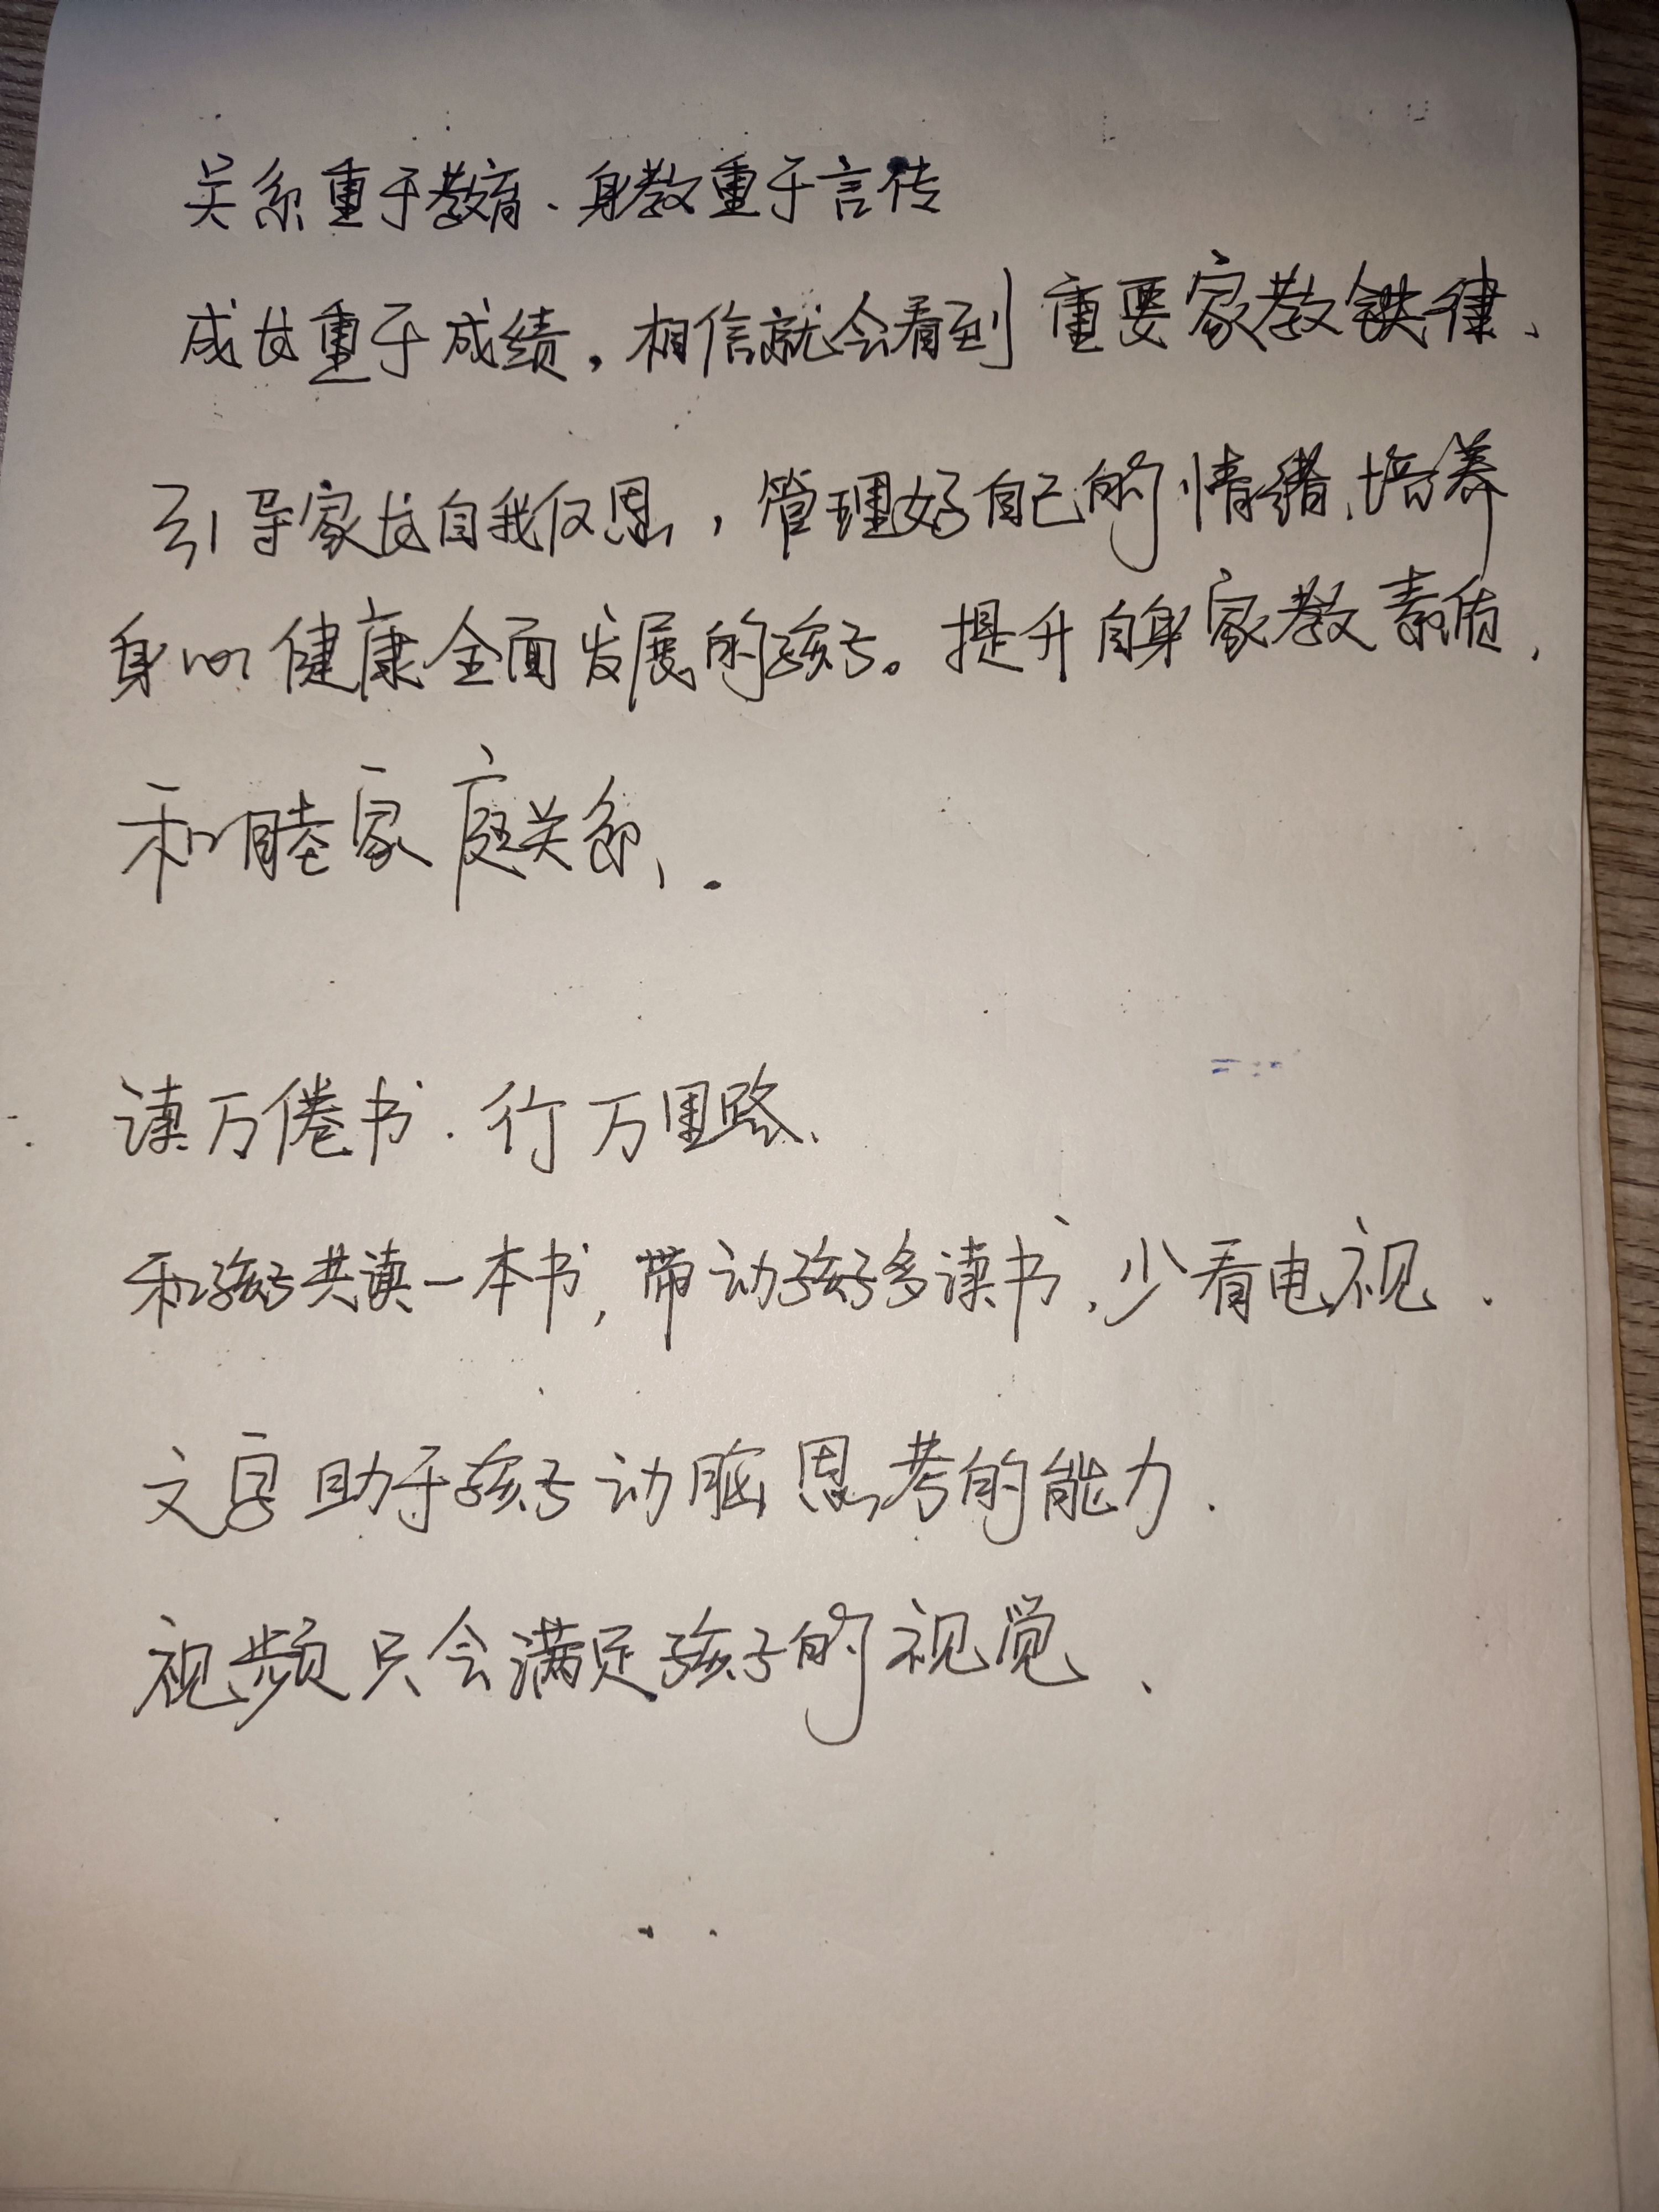 关系重于教育、身教重于言传
成长重于成绩，相信就会看到重要家教铁律、
引导家长自我反思，管理好自己的情绪、培养
身心健康全面发展的孩子。提升自身家教素质，
和睦家庭关系、.
读万倦书.行万里路、
和孩子共读一本书，带动孩子多读书，少看电视.
文字助于孩子动脑思考的能力.
视频只会满足孩子的视觉、